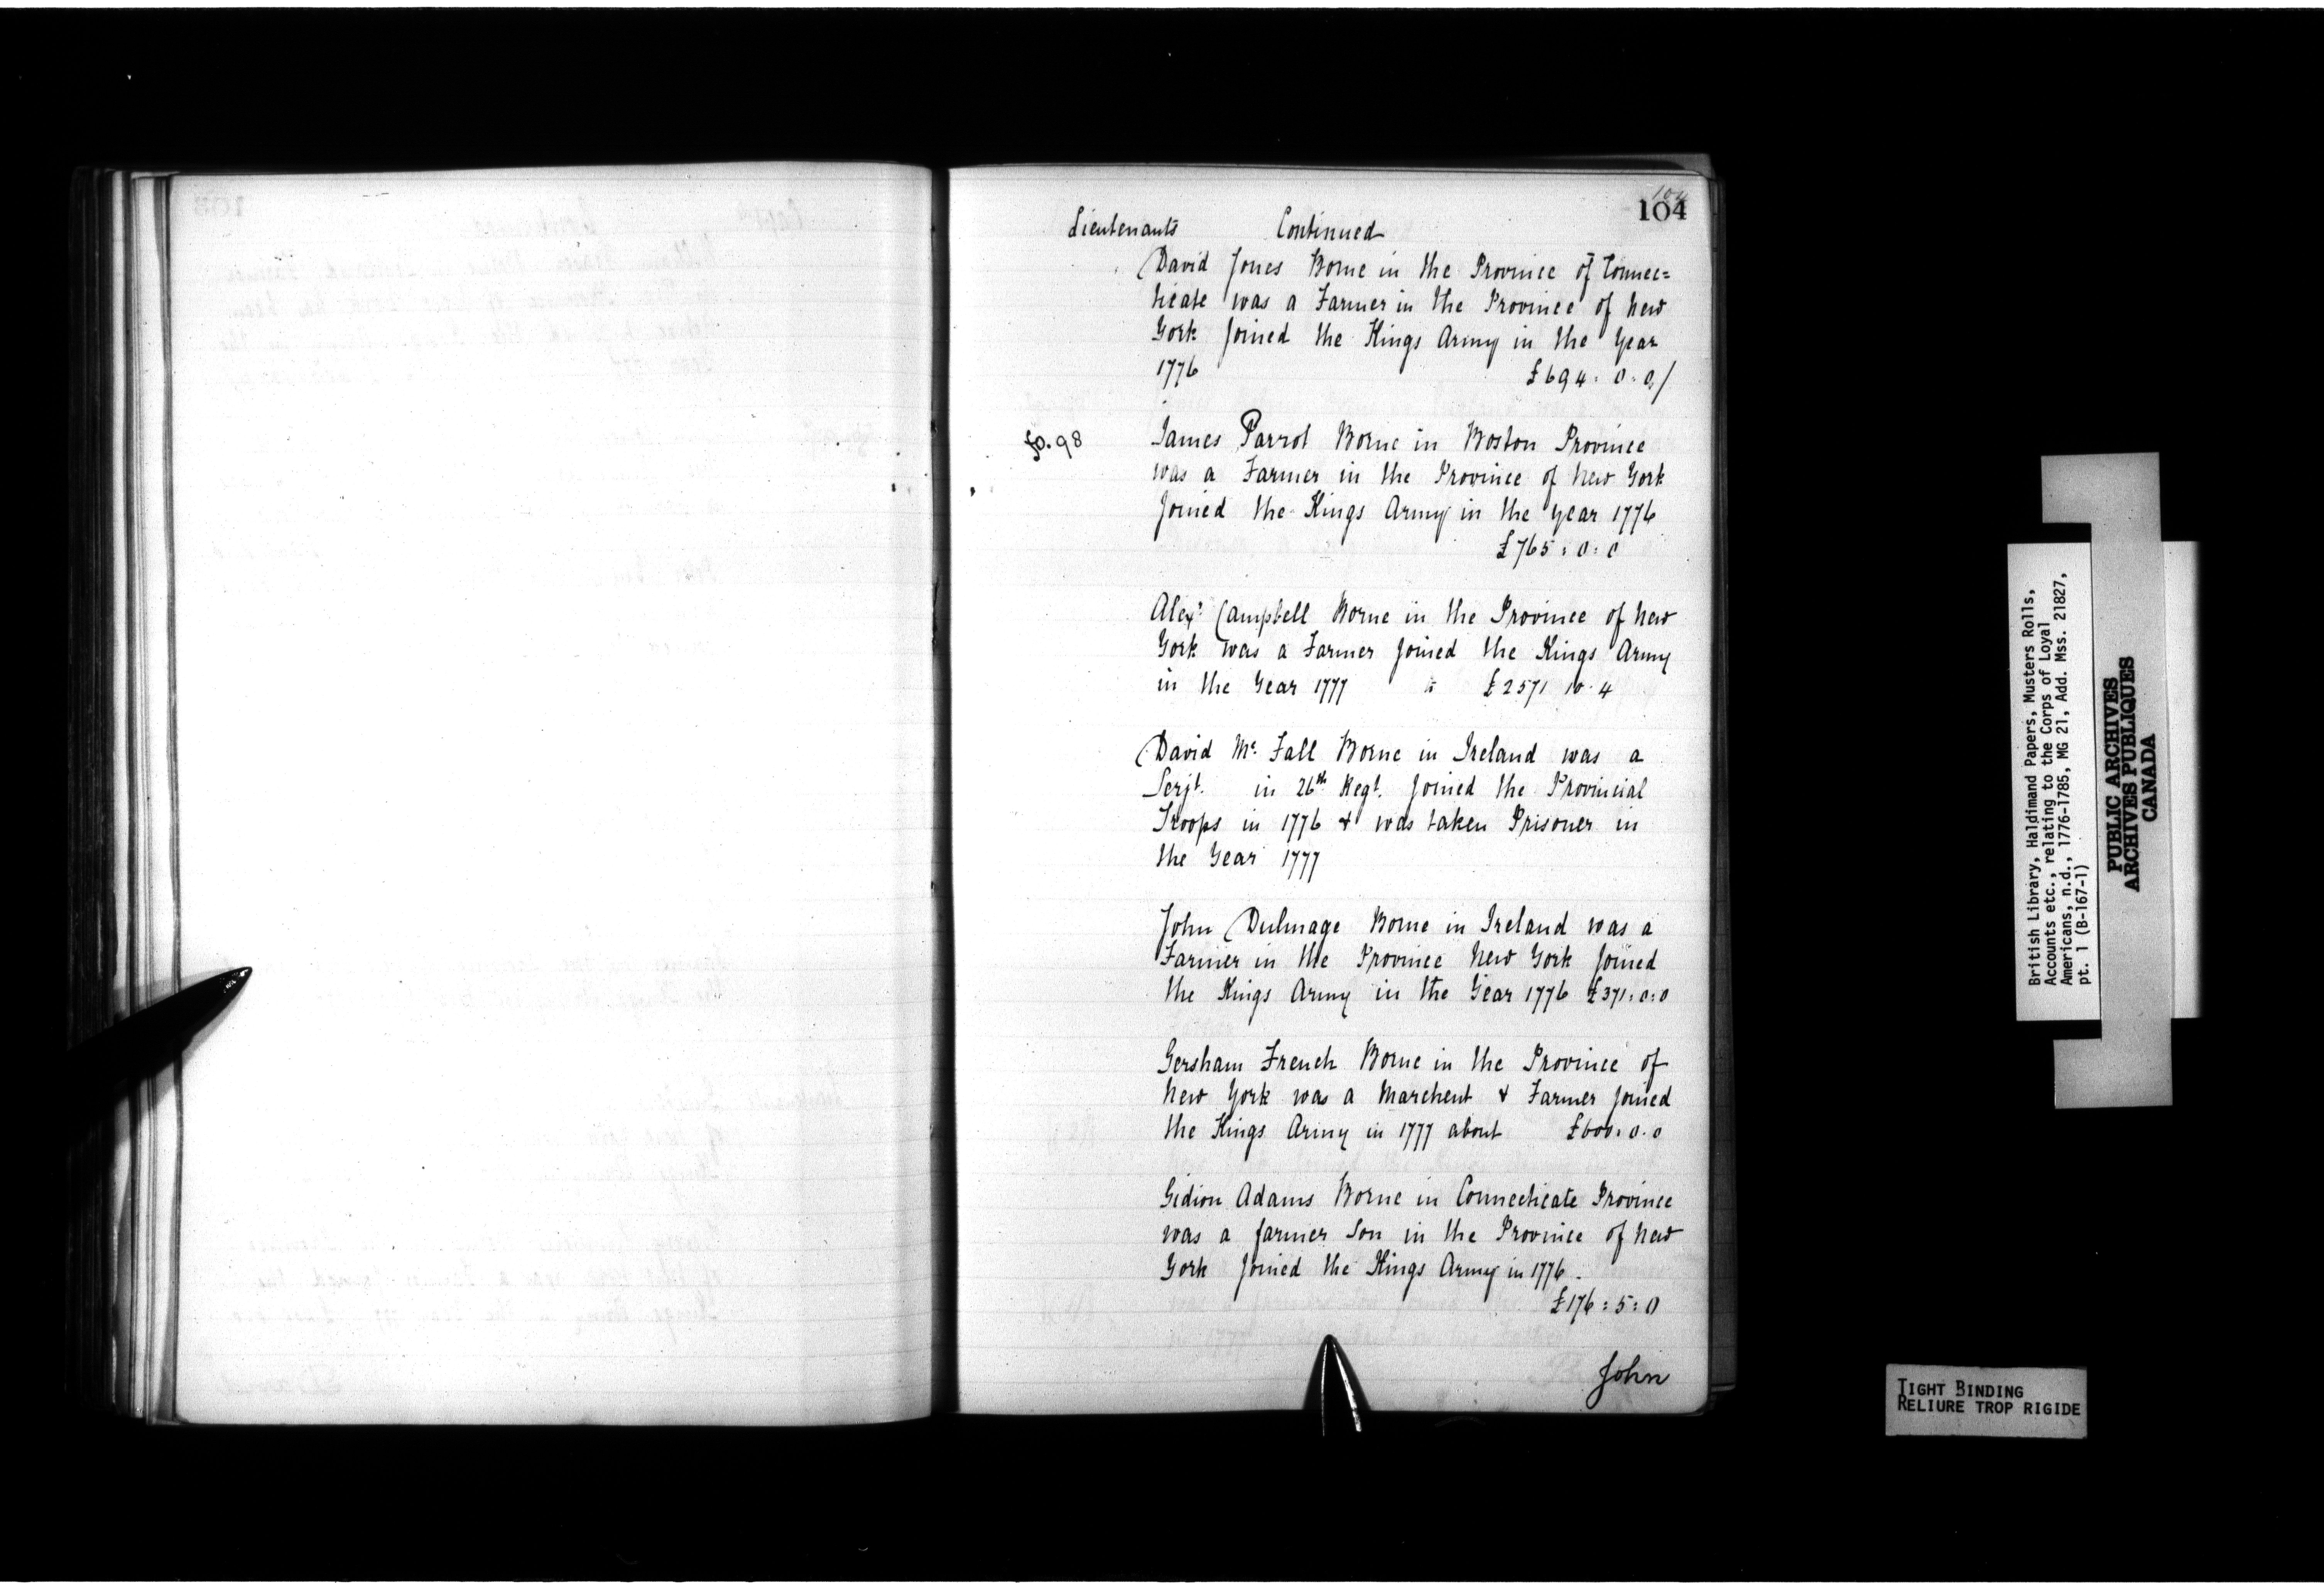 104
104
Lieutenants Continued
David Jones Borne in the Province of Connec=
ticate was a Farmer in the Province of New
York Joined the Kings Army in the Year
1776 £694: 0: 0/
fo. 98
James Parrot Borne in Boston Province
was a Farmer in the Province of New York
Joined the Kings Army in the year 1776
£765: 0: 0
Alexr Campbell Borne in the Province of New
York was a Farmer Joined the Kings Army
in the Year 1777 £2571 10. 4
David Mc. Fall Borne in Ireland was a
Serjt. in 26th Regt. Joined the Provincial
Troops in 1776 & was taken Prisoner in
the Year 1777
John Dulmage Borne in Ireland was a
Farmer in the Province New York Joined
the Kings Army in the Year 1776 £371: 0: 0
Gersham French Borne in the Province of
New York was a Marchent & Farmer Joined
the Kings Army in 1777 about £600. 0. 0
Gidion Adams Borne in Connecticate Province
was a farmer Son in the Province of New
York Joined the Kings Army in 1776.
£176: 5: 0
John
British Library, Haldimand Papers, Musters Rolls,
Accounts etc., relating to the Corps of Loyal
Americans, n.d., 1776-1785, MG 21, Add. Mss. 21827,
pt. 1 (B-167-1)
PUBLIC ARCHIVES
ARCHIVES PUBLIQUES
CANADA
TIGHT BINDING
RELIURE TROP RIGIDE